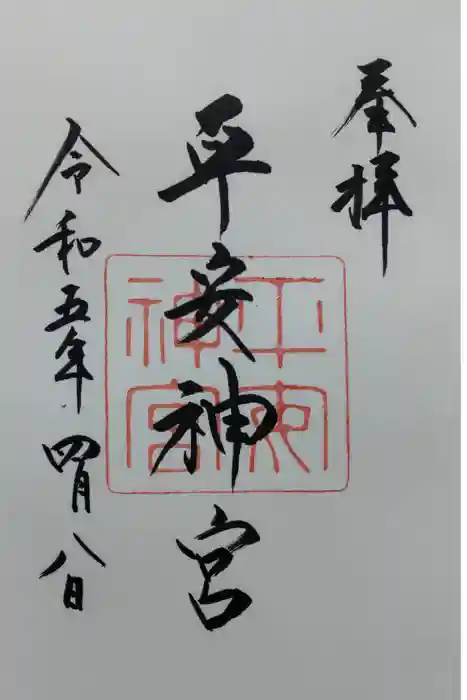 奉拝
平安神宮
平安神宮
令和五年四月八日